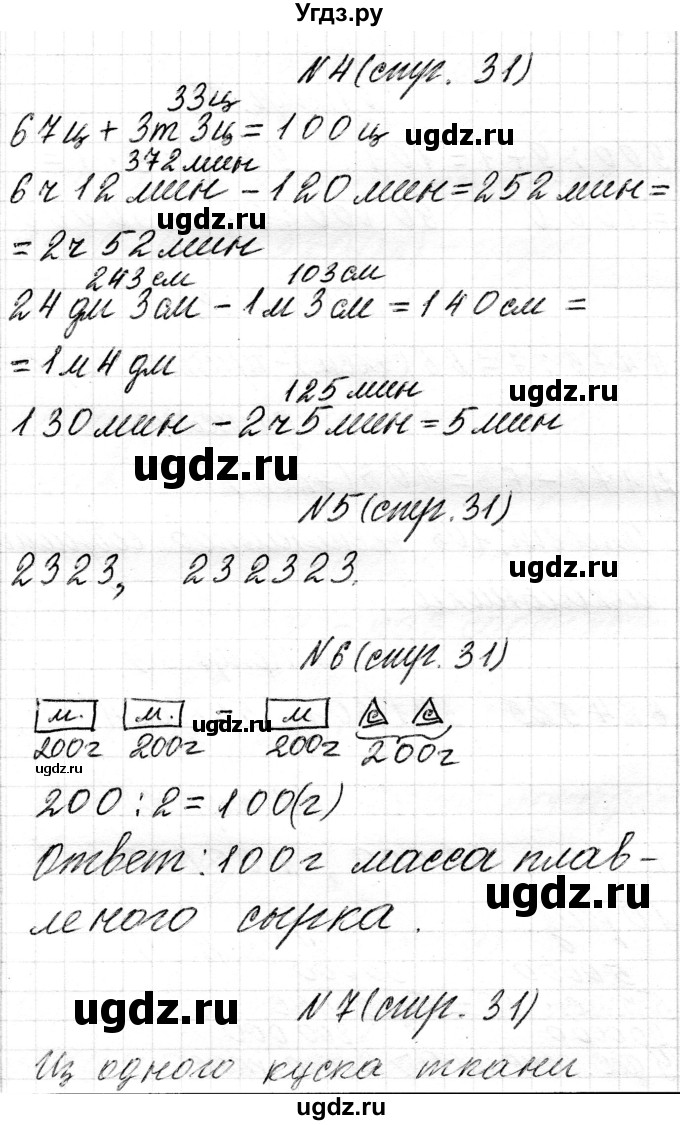 Угдз.ру
N4(стр. 31)
33ц
67ц + 3т 3ц = 100ц
ugdz.ru
372мин
6ч 12мин - 120мин = 252мин =
ugdz.ru
= 2ч 52мин
243см 103см
24дм 3см - 1м 3см = 140см =
= 1м 4дм
ugdz.ru
125мин
130мин - 2ч5мин = 5мин
ugdz.ru
N5(стр. 31)
2323, 232323.
ugdz.ru
N6(стр. 31)
м. м. = м с с
ugdz.ru
200г 200г 200г 200г
ugdz.ru
200 : 2 = 100(г)
Ответ: 100г масса плав-
ugdz.ru
леного сырка.
ugdz.ru
N7(стр. 31)
Из одного куска ткани
ugdz.ru